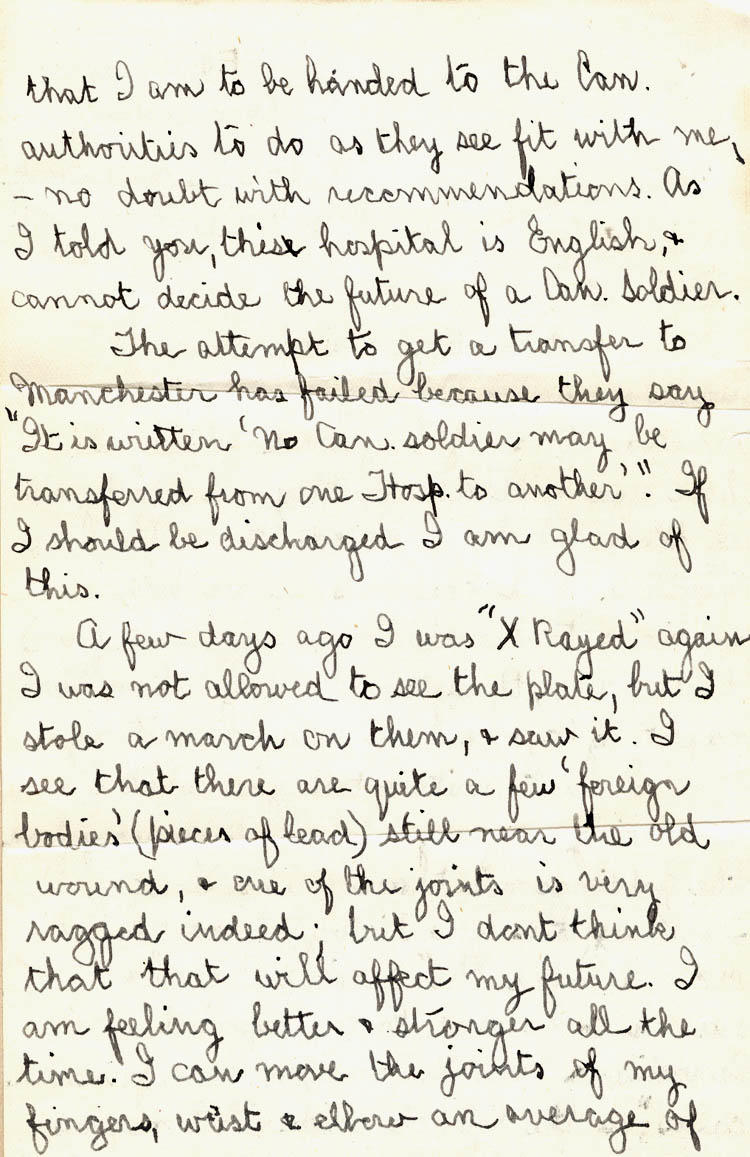 that I am to be handed to the Can.
authorities to do as they see fit with me,
– no doubt with recommendations. As
I told you, this hospital is English, &
cannot decide the future of a Can. Soldier.
The attempt to get a transfer to
Manchester has failed because they say
"It is written 'No Can. soldier may be
transferred from one Hosp. to another'". If
I should be discharged I am glad of
this.
A few days ago I was "X Rayed" again
I was not allowed to see the plate, but I
stole a march on them, & saw it. I
see that there are quite a few 'foreign
bodies' (pieces of lead) still near the old
wound, & one of the joints is very
ragged indeed; but I dont think
that that will affect my future. I
am feeling better & stronger all the
time. I can move the joints of my
fingers, wrist & elbow an average of